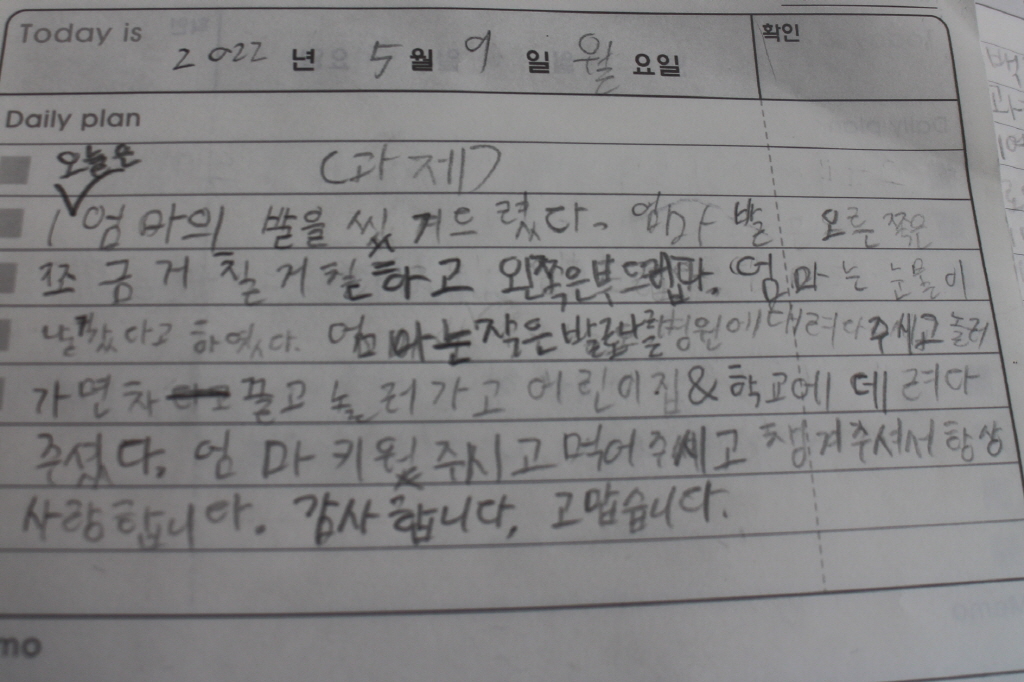 Today is
2022 년 5 월 9 일 월 요일
확인
Daily plan
오늘은
(과제)
엄마의 발을 씻겨드렸다. 엄마 발 오른쪽은
쪼금 거칠거칠하고 왼쪽은부드럽다. 엄마는 눈물이
날 하였다. 엄마는작은 병원에대려다주세고 놀러
가면차 끌고 놀러가고 어린이집&학교에 데려다
주셨다. 엄마 키워주시고 먹어주세고 챙겨주셔서 항상
사랑합니다. 감사합니다, 고맙습니다.
mo